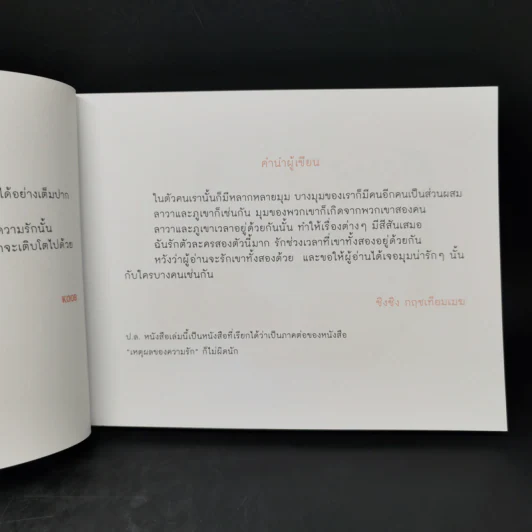 ได้อย่างเต็มปาก
ความรักนั้น
าจะเติบโตไปด้วย
คำนำผู้เขียน
ในตัวคนเรานั้นก็มีหลากหลายมุม บางมุมของเราก็มีคนอีกคนเป็นส่วนผสม
ลาวาและภูเขาก็เช่นกัน มุมของพวกเขาก็เกิดจากพวกเขาสองคน
ลาวาและภูเขาเวลาอยู่ด้วยกันนั้น ทำให้เรื่องต่างๆ มีสีสันเสมอ
ฉันรักตัวละครสองตัวนี้มาก รักช่วงเวลาที่เขาทั้งสองอยู่ด้วยกัน
หวังว่าผู้อ่านจะรักเขาทั้งสองด้วย และขอให้ผู้อ่านได้เจอมุมน่ารักๆ นั้น
กับใครบางคนเช่นกัน
ซิงซิง กฤชเทียมเมฆ
ป.ล. หนังสือเล่มนี้เป็นหนังสือที่เรียกได้ว่าเป็นภาคต่อของหนังสือ
"เหตุผลของความรัก" ก็ไม่ผิดนัก